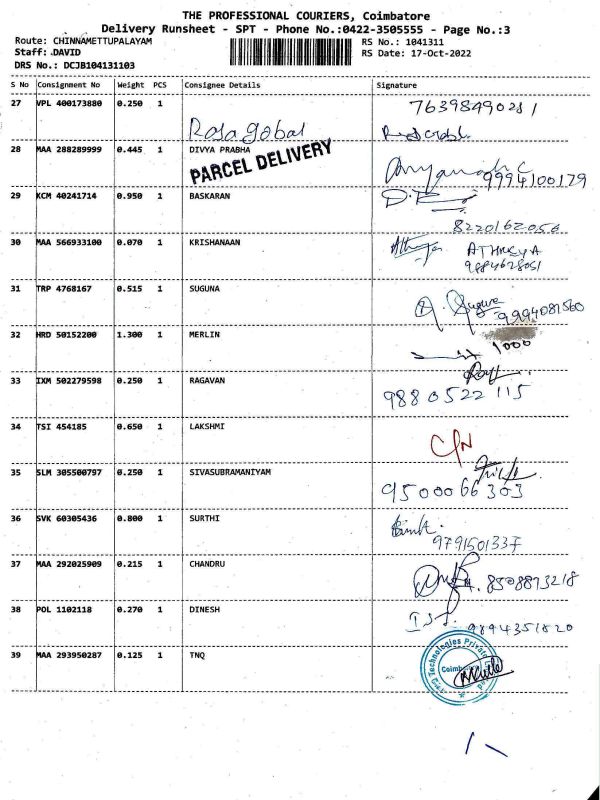 THE PROFESSIONAL COURIERS, Coimbatore
Delivery Runsheet - SPT - Phone No.:0422-3505555 - Page No.:3
Route: CHINNAMETTUPALAYAM RS No.: 1041311
Staff: DAVID RS Date: 17-Oct-2022
DRS No.: DCJB104131103
S No Consignment No Weight PCS Consignee Details Signature
27 VPL 400173880 0.250 1 7639849028 1
Raja gobal
28 MAA 288289999 0.445 1 DIVYA PRABHA
PARCEL DELIVERY
9994100179
29 KCM 40241714 0.950 1 BASKARAN
8220162056
30 MAA 566933100 0.070 1 KRISHANAAN
31 TRP 4768167 0.515 1 SUGUNA
9994081560
32 HRD 50152200 1.300 1 MERLIN
1000
33 IXM 502279598 0.250 1 RAGAVAN
9880522 115
34 TSI 454185 0.650 1 LAKSHMI
C/N
35 SLM 305500797 0.250 1 SIVASUBRAMANIYAM
9500066303
36 SVK 60305436 0.800 1 SURTHI
9791501337
37 MAA 292025909 0.215 1 CHANDRU
8508873218
38 POL 1102118 0.270 1 DINESH
9894351820
39 MAA 293950287 0.125 1 TNQ
Technologies Private